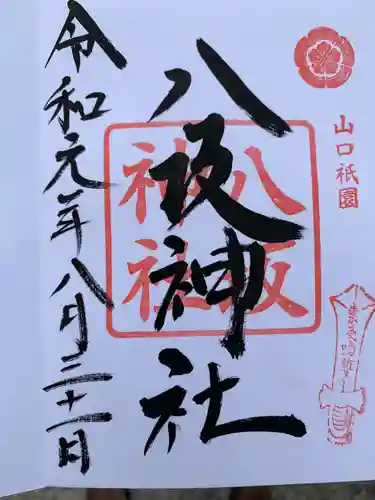 山口祇園
八坂神社
八坂神社
令和元年八月三十一日